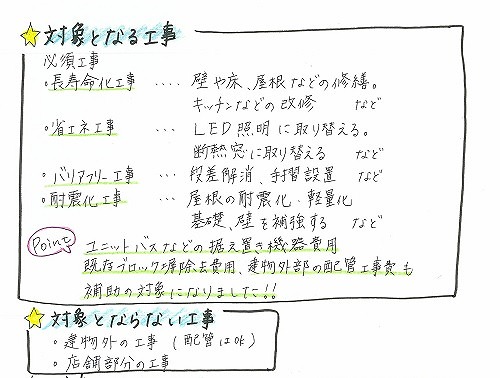 ☆対象となる工事
必須工事
・長寿命化工事 ‥‥ 壁や床、屋根などの修繕。
キッチンなどの改修 など
・省エネ工事 ‥‥ LED照明に取り替える。
断熱窓に取り替える など
・バリアフリー工事 ‥‥ 段差解消、手摺設置 など
・耐震化工事 ‥‥ 屋根の耐震化・軽量化
基礎、壁を補強する など
Point
ユニットバスなどの据え置き機器費用
既存ブロック塀除去費用、建物外部の配管工事費も
補助の対象になりましたー!!
☆対象とならない工事
・建物外の工事 (配管はok)
・店舗部分の工事